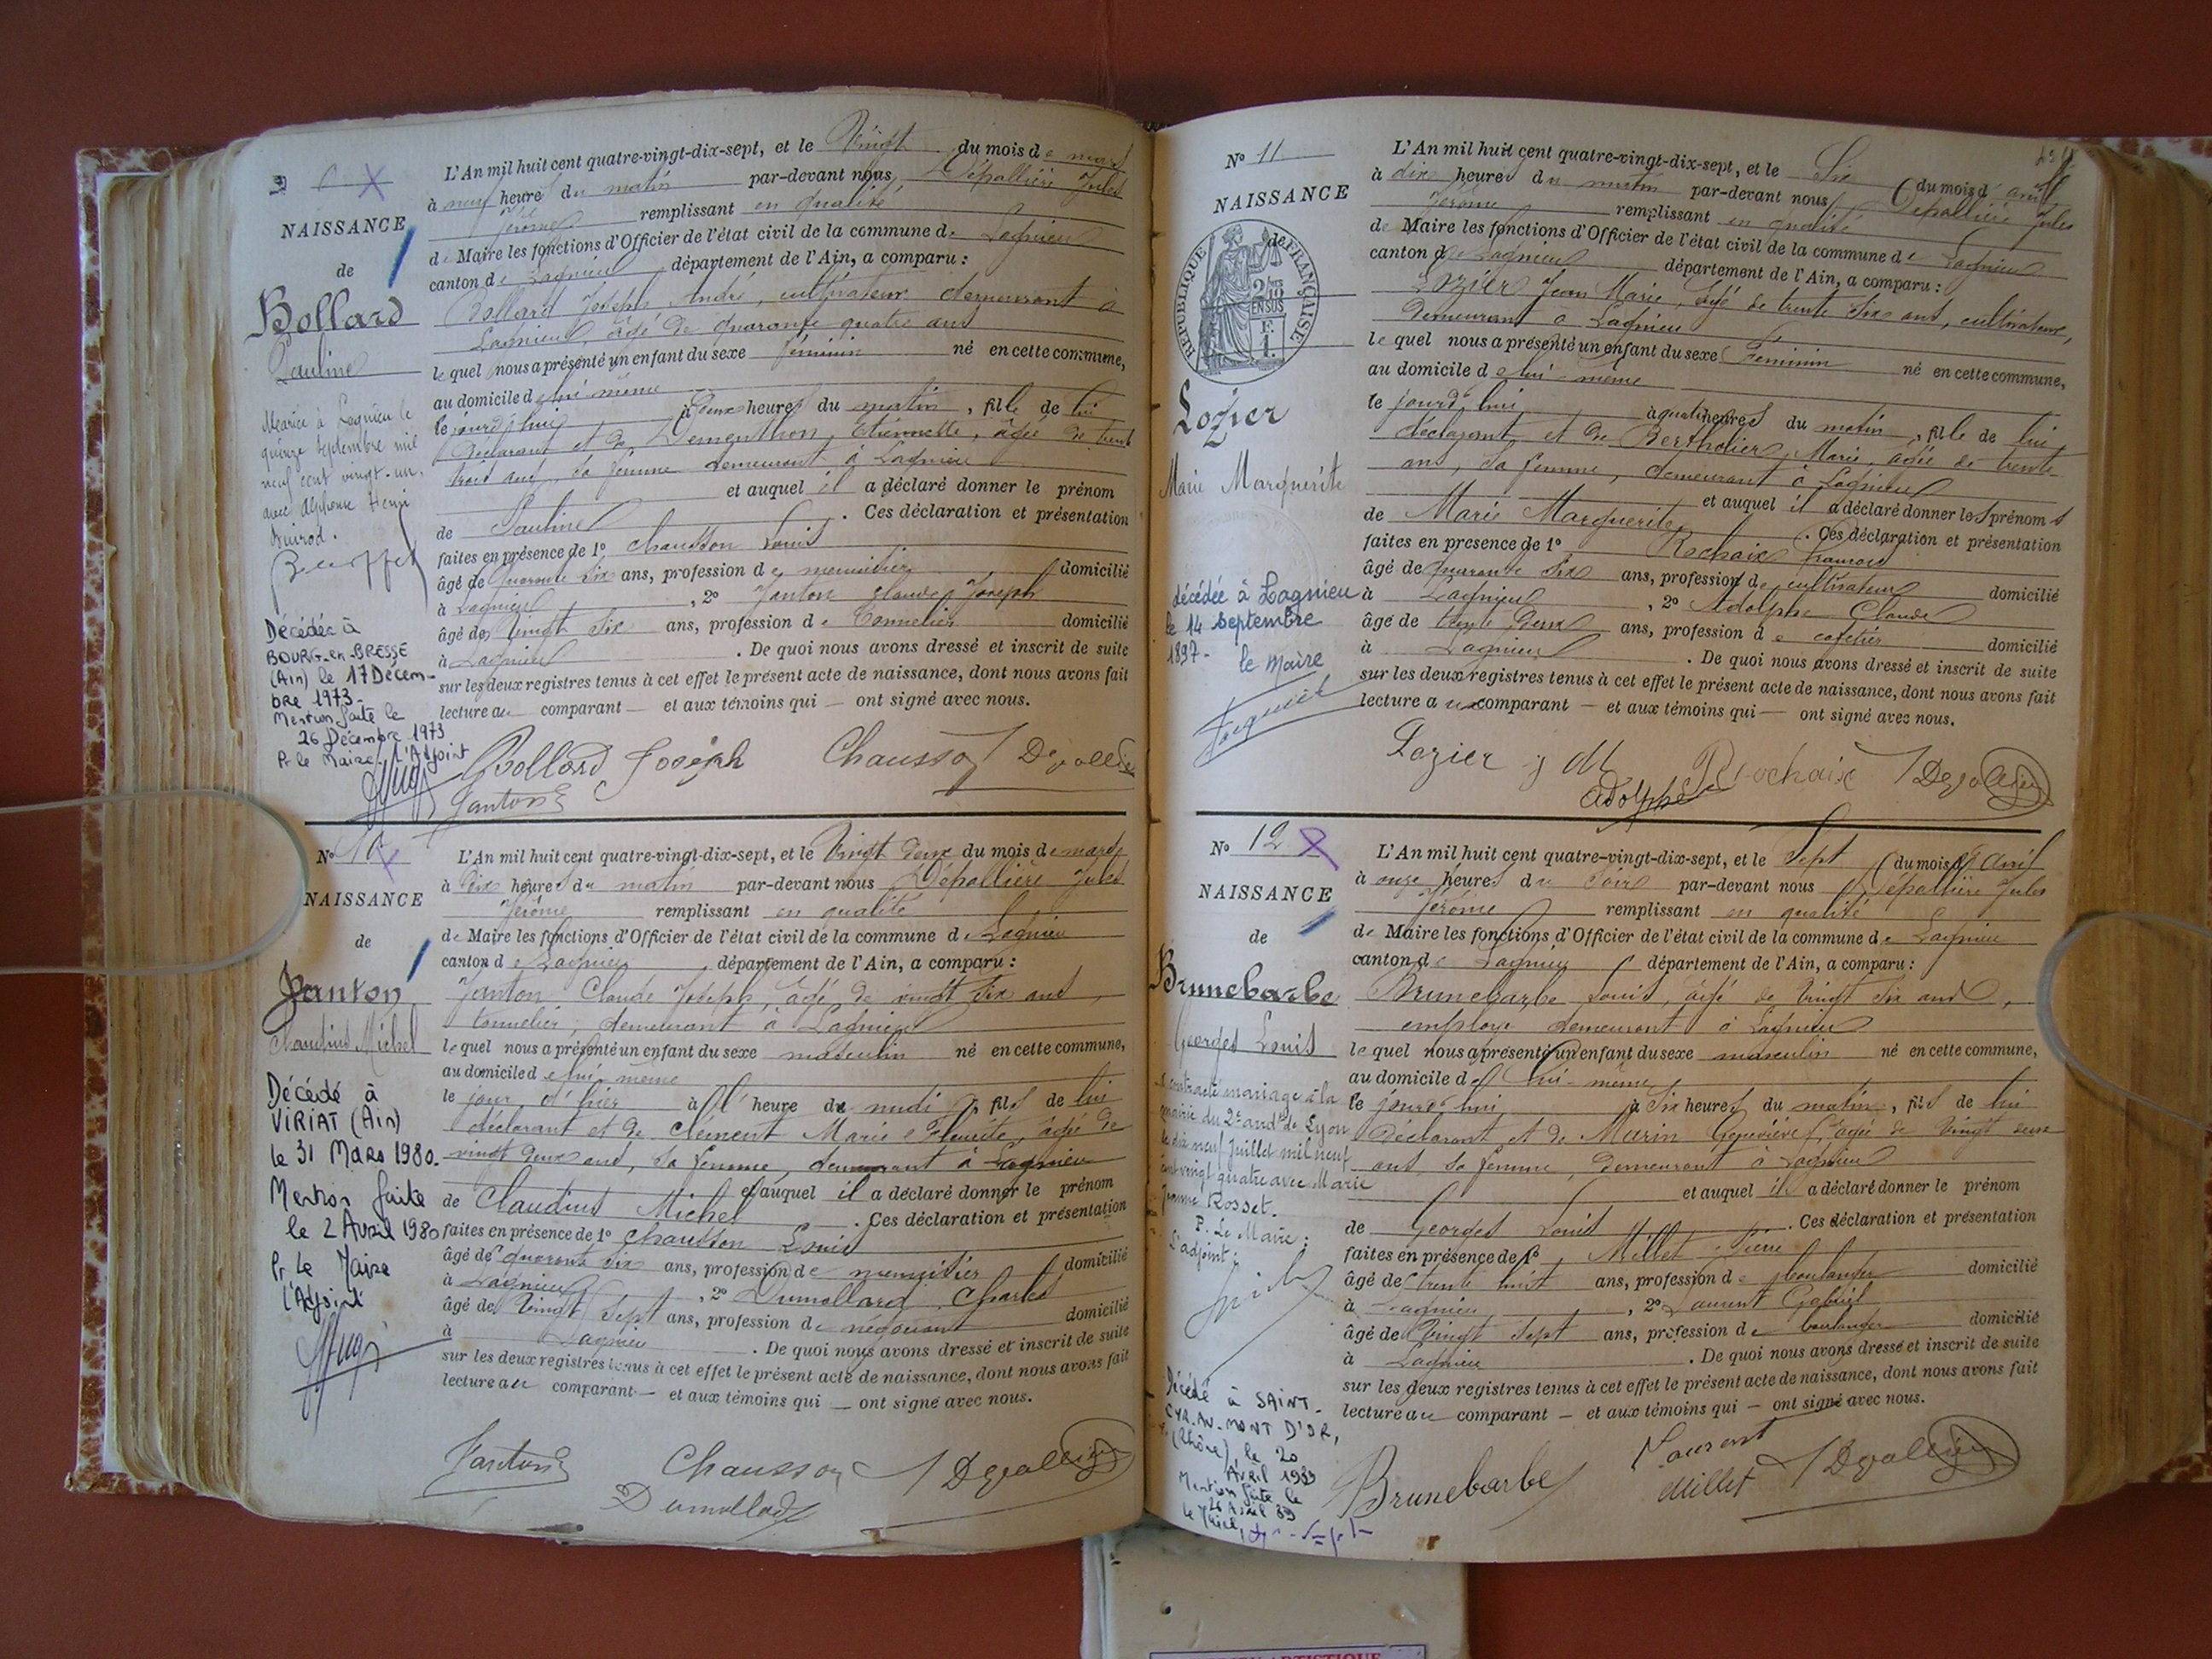 NAISSANCE
de
Bollard
Pauline
Mariée à Lagnieu le
quinze septembre mil
neuf cent vingt-un
avec Alphonse Henri
Décédée à
BOURG-en-BRESSE
(Ain) le 17 Décem-
bre 1973-
Mention faite le
26 Décembre 1973
Pr le Maire, l'Adjoint
L'An mil huit cent quatre-vingt-dix-sept, et le Vingt du mois de mars
à neuf heures du matin par-devant nous, Dépallière Jules
Jérôme remplissant en qualité
de Maire les fonctions d'Officier de l'état civil de la commune de Lagnieu
canton de Lagnieu, département de l'Ain, a comparu :
Bollard Joseph André, cultivateur demeurant à
Lagnieu, âgé de quarante quatre ans
lequel nous a présenté un enfant du sexe féminin né en cette commune,
au domicile de lui-même
le jourd'hui à deux heures du matin, fille de lui
déclarant et de Dementhon, Etiennette, âgée de trente
trois ans, sa femme demeurant à Lagnieu
et auquel il a déclaré donner le prénom
de Pauline . Ces déclaration et présentation
faites en présence de 1° Chausson Louis
âgé de quarante six ans, profession de menuisier domicilié
à Lagnieu, 2° Janton Claude Joseph
âgé de vingt six ans, profession de tonnelier domicilié
à Lagnieu . De quoi nous avons dressé et inscrit de suite
sur les deux registres tenus à cet effet le présent acte de naissance, dont nous avons fait
lecture au comparant — et aux témoins qui — ont signé avec nous.
Bollard Joseph Chausson
Janton
N° 10
NAISSANCE
de
Janton
Claudius Michel
Décédé à
VIRIAT (Ain)
le 31 Mars 1980.
Mention faite
le 2 Avril 1980
Pr le Maire
l'Adjoint
L'An mil huit cent quatre-vingt-dix-sept, et le Vingt deux du mois de mars
à dix heures du matin par-devant nous Dépallière Jules
Jérôme remplissant en qualité
de Maire les fonctions d'Officier de l'état civil de la commune de Lagnieu
canton de Lagnieu, département de l'Ain, a comparu :
Janton Claude Joseph, âgé de vingt six ans,
tonnelier, demeurant à Lagnieu
lequel nous a présenté un enfant du sexe masculin né en cette commune,
au domicile de lui-même
le jour d'hier à l'heure de midi, fils de lui
déclarant et de Clément Marie Fleurite, âgé de
vingt deux ans, sa femme, demeurant à Lagnieu
et auquel il a déclaré donner le prénom
de Claudius Michel . Ces déclaration et présentation
faites en présence de 1° Chausson Louis
âgé de quarante six ans, profession de menuisier domicilié
à Lagnieu, 2° Dumollard Charles
âgé de Vingt Sept ans, profession de négociant domicilié
à Lagnieu . De quoi nous avons dressé et inscrit de suite
sur les deux registres tenus à cet effet le présent acte de naissance, dont nous avons fait
lecture au comparant — et aux témoins qui — ont signé avec nous.
Janton Chausson
Dumollard
N° 11
NAISSANCE
REPUBLIQUE FRANÇAISE
Lozier
Marie Marguerite
décédée à Lagnieu
le 14 Septembre
1897-
le Maire
L'An mil huit cent quatre-vingt-dix-sept, et le Six du mois d'avril
à dix heures du matin par-devant nous Dépallière Jules
Jérôme remplissant en qualité
de Maire les fonctions d'Officier de l'état civil de la commune de Lagnieu
canton de Lagnieu département de l'Ain, a comparu :
Lozier Jean Marie, âgé de trente six ans, cultivateur,
demeurant à Lagnieu
lequel nous a présenté un enfant du sexe Féminin né en cette commune,
au domicile de lui-même
le jourd'hui à quatre heures du matin, fille de lui
déclarant, et de Bertholier Marie, âgée de trente
ans, sa femme, demeurant à Lagnieu
et auquel il a déclaré donner les prénoms
de Marie Marguerite . Ces déclaration et présentation
faites en présence de 1° Rochaix François
âgé de quarante six ans, profession de cultivateur domicilié
à Lagnieu, 2° Adolphe Claude
âgé de trente deux ans, profession de cafetier domicilié
à Lagnieu . De quoi nous avons dressé et inscrit de suite
sur les deux registres tenus à cet effet le présent acte de naissance, dont nous avons fait
lecture au comparant — et aux témoins qui — ont signé avec nous.
Lozier j M Rochaix
Adolphe
N° 12
NAISSANCE
de
Brunebarbe
Georges Louis
a contracté mariage à la
mairie du 2e arrdt de Lyon
le dix neuf Juillet mil neuf
cent vingt quatre avec Marie
Jeanne Rosset.
P. Le Maire :
L'adjoint :
Décédé à SAINT-
CYR-AU-MONT D'OR,
(Rhône) le 20
Avril 1983
Mention faite le
26 Avril 83
L'An mil huit cent quatre-vingt-dix-sept, et le Sept du mois d'Avril
à onze heures du soir par-devant nous Dépallière Jules
Jérôme remplissant en qualité
de Maire les fonctions d'Officier de l'état civil de la commune de Lagnieu
canton de Lagnieu département de l'Ain, a comparu :
Brunebarbe Louis, âgé de vingt six ans,
employé demeurant à Lagnieu
lequel nous a présenté un enfant du sexe masculin né en cette commune,
au domicile de lui-même
le jourd'hui à six heures du matin, fils de lui
déclarant et de Marin Geneviève, âgée de vingt deux
ans sa femme, demeurant à Lagnieu
et auquel il a déclaré donner le prénom
de Georges Louis . Ces déclaration et présentation
faites en présence de 1° Millet Pierre
âgé de trente huit ans, profession de boulanger domicilié
à Lagnieu, 2° Laurent Gabriel
âgé de Vingt Sept ans, profession de boulanger domicilié
à Lagnieu . De quoi nous avons dressé et inscrit de suite
sur les deux registres tenus à cet effet le présent acte de naissance, dont nous avons fait
lecture au comparant — et aux témoins qui — ont signé avec nous.
Laurent
Brunebarbe Millet